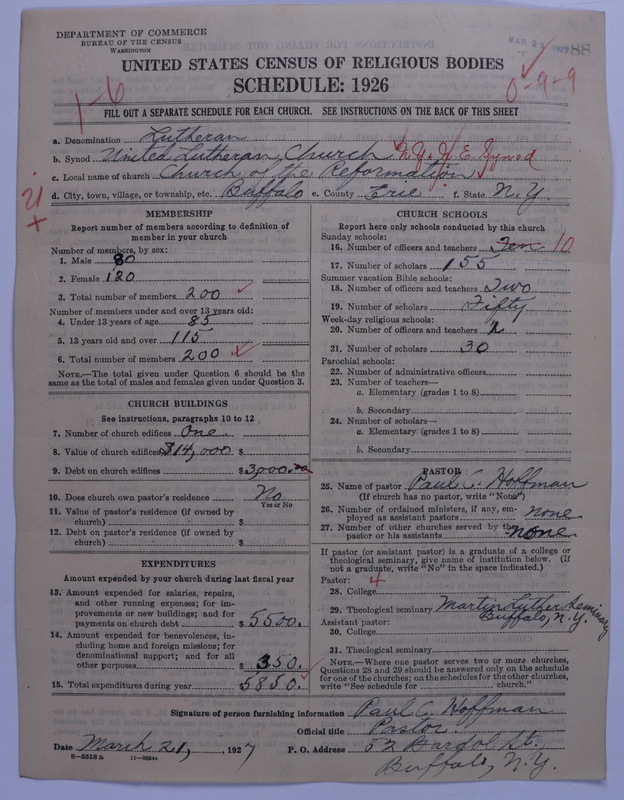 DEPARTMENT OF COMMERCE
BUREAU OF THE CENSUS
WASHINGTON
UNITED STATES CENSUS OF RELIGIOUS BODIES
SCHEDULE: 1926
1-6
0-9-9
FILL OUT A SEPARATE SCHEDULE FOR EACH CHURCH. SEE INSTRUCTIONS ON THE BACK OF THIS SHEET
a. Denomination Lutheran
b. Synod United Lutheran Church N.Y. & N.E. Synod
c. Local name of church Church of the Reformation
d. City, town, village, or township, etc. Buffalo e. County Erie f. State N.Y.
MEMBERSHIP
Report number of members according to definition of
member in your church
Number of members, by sex:
1. Male 80
2. Female 120
3. Total number of members 200
Number of members under and over 13 years old:
4. Under 13 years of age 85
5. 13 years old and over 115
6. Total number of members 200
NOTE.—The total given under Question 6 should be the
same as the total of males and females given under Question 3.
CHURCH BUILDINGS
See instructions, paragraphs 10 to 12
7. Number of church edifices One
8. Value of church edifices $14,000 $
9. Debt on church edifices $3,000.
10. Does church own pastor's residence No
Yes or No
11. Value of pastor's residence (if owned by
church) $
12. Debt on pastor's residence (if owned by
church) $
EXPENDITURES
Amount expended by your church during last fiscal year
13. Amount expended for salaries, repairs,
and other running expenses; for im-
provements or new buildings; and for
payments on church debt $ 5500.
14. Amount expended for benevolences, in-
cluding home and foreign missions; for
denominational support; and for all
other purposes $ 350.
15. Total expenditures during year 5850.
CHURCH SCHOOLS
Report here only schools conducted by this church
Sunday schools:
16. Number of officers and teachers Ten 10
17. Number of scholars 155
Summer vacation Bible schools:
18. Number of officers and teachers Two
19. Number of scholars Fifty
Week-day religious schools:
20. Number of officers and teachers 2
21. Number of scholars 30
Parochial schools:
22. Number of administrative officers
23. Number of teachers—
a. Elementary (grades 1 to 8)
b. Secondary
24. Number of scholars—
a. Elementary (grades 1 to 8)
b. Secondary
PASTOR
25. Name of pastor Paul C. Hoffman
(If church has no pastor, write "None")
26. Number of ordained ministers, if any, em-
ployed as assistant pastors none
27. Number of other churches served by the
pastor or his assistants none
If pastor (or assistant pastor) is a graduate of a college or
theological seminary, give name of institution below. (If
not a graduate, write "No" in the space indicated.)
Pastor: 4
28. College
29. Theological seminary Martin Luther Seminary
Buffalo, N.Y.
Assistant pastor:
30. College
31. Theological seminary
NOTE.—Where one pastor serves two or more churches,
Questions 28 and 29 should be answered only on the schedule
for one of the churches; on the schedules for the other churches,
write "See schedule for church."
Signature of person furnishing information Paul C. Hoffman
Official title Pastor
Date March 21, 1927 P. O. Address St.,
Buffalo, N.Y.
8—5518a